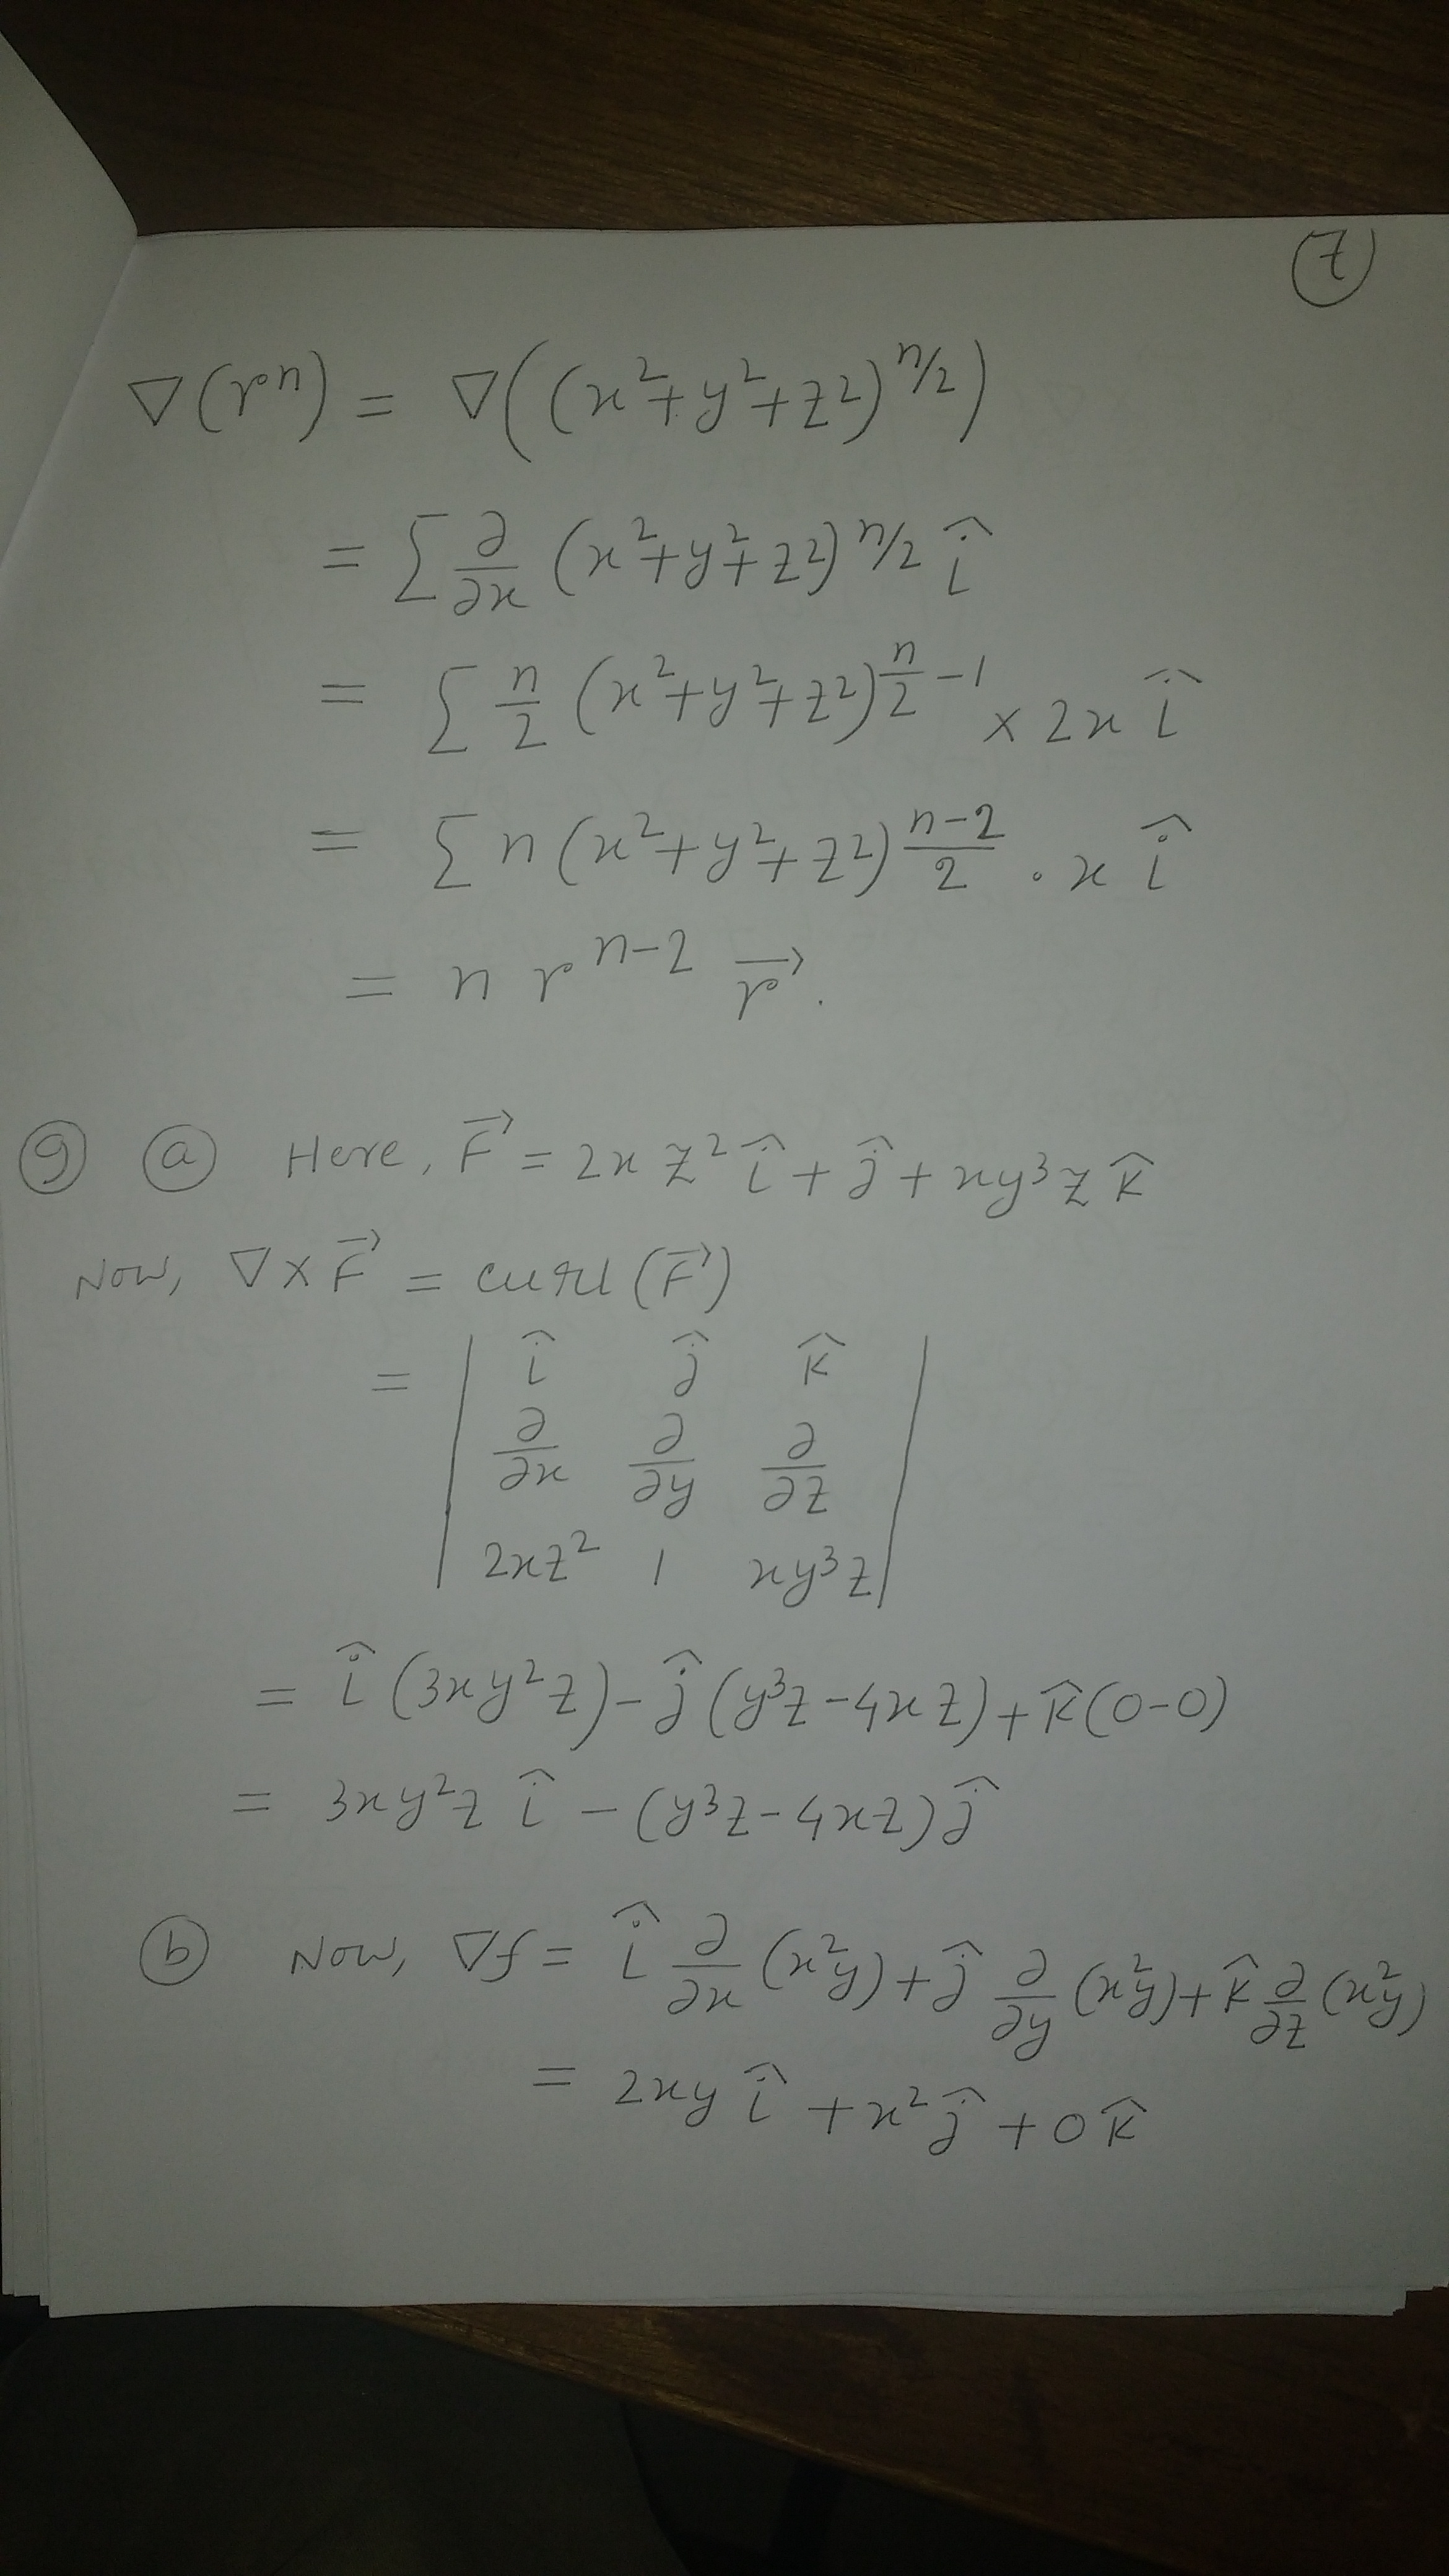 (7)
∇(rⁿ) = ∇((x²+y²+z²)^{n/2})
= Σ ∂/∂x (x²+y²+z²)^{n/2} î
= Σ n/2 (x²+y²+z²)^{n/2 -1} × 2x î
= Σ n(x²+y²+z²)^{(n-2)/2} . x î
= n r^{n-2} r⃗.
(9) (a) Here, F⃗ = 2x z² î + ĵ + xy³z k̂
Now, ∇×F⃗ = curl(F⃗)
= | î ĵ k̂ |
| ∂/∂x ∂/∂y ∂/∂z |
| 2xz² 1 xy³z |
= î (3xy²z) - ĵ (y³z - 4xz) + k̂(0-0)
= 3xy²z î - (y³z - 4xz) ĵ
(b) Now, ∇f = î ∂/∂x (x²y) + ĵ ∂/∂y (x²y) + k̂ ∂/∂z (x²y)
= 2xy î + x² ĵ + 0 k̂